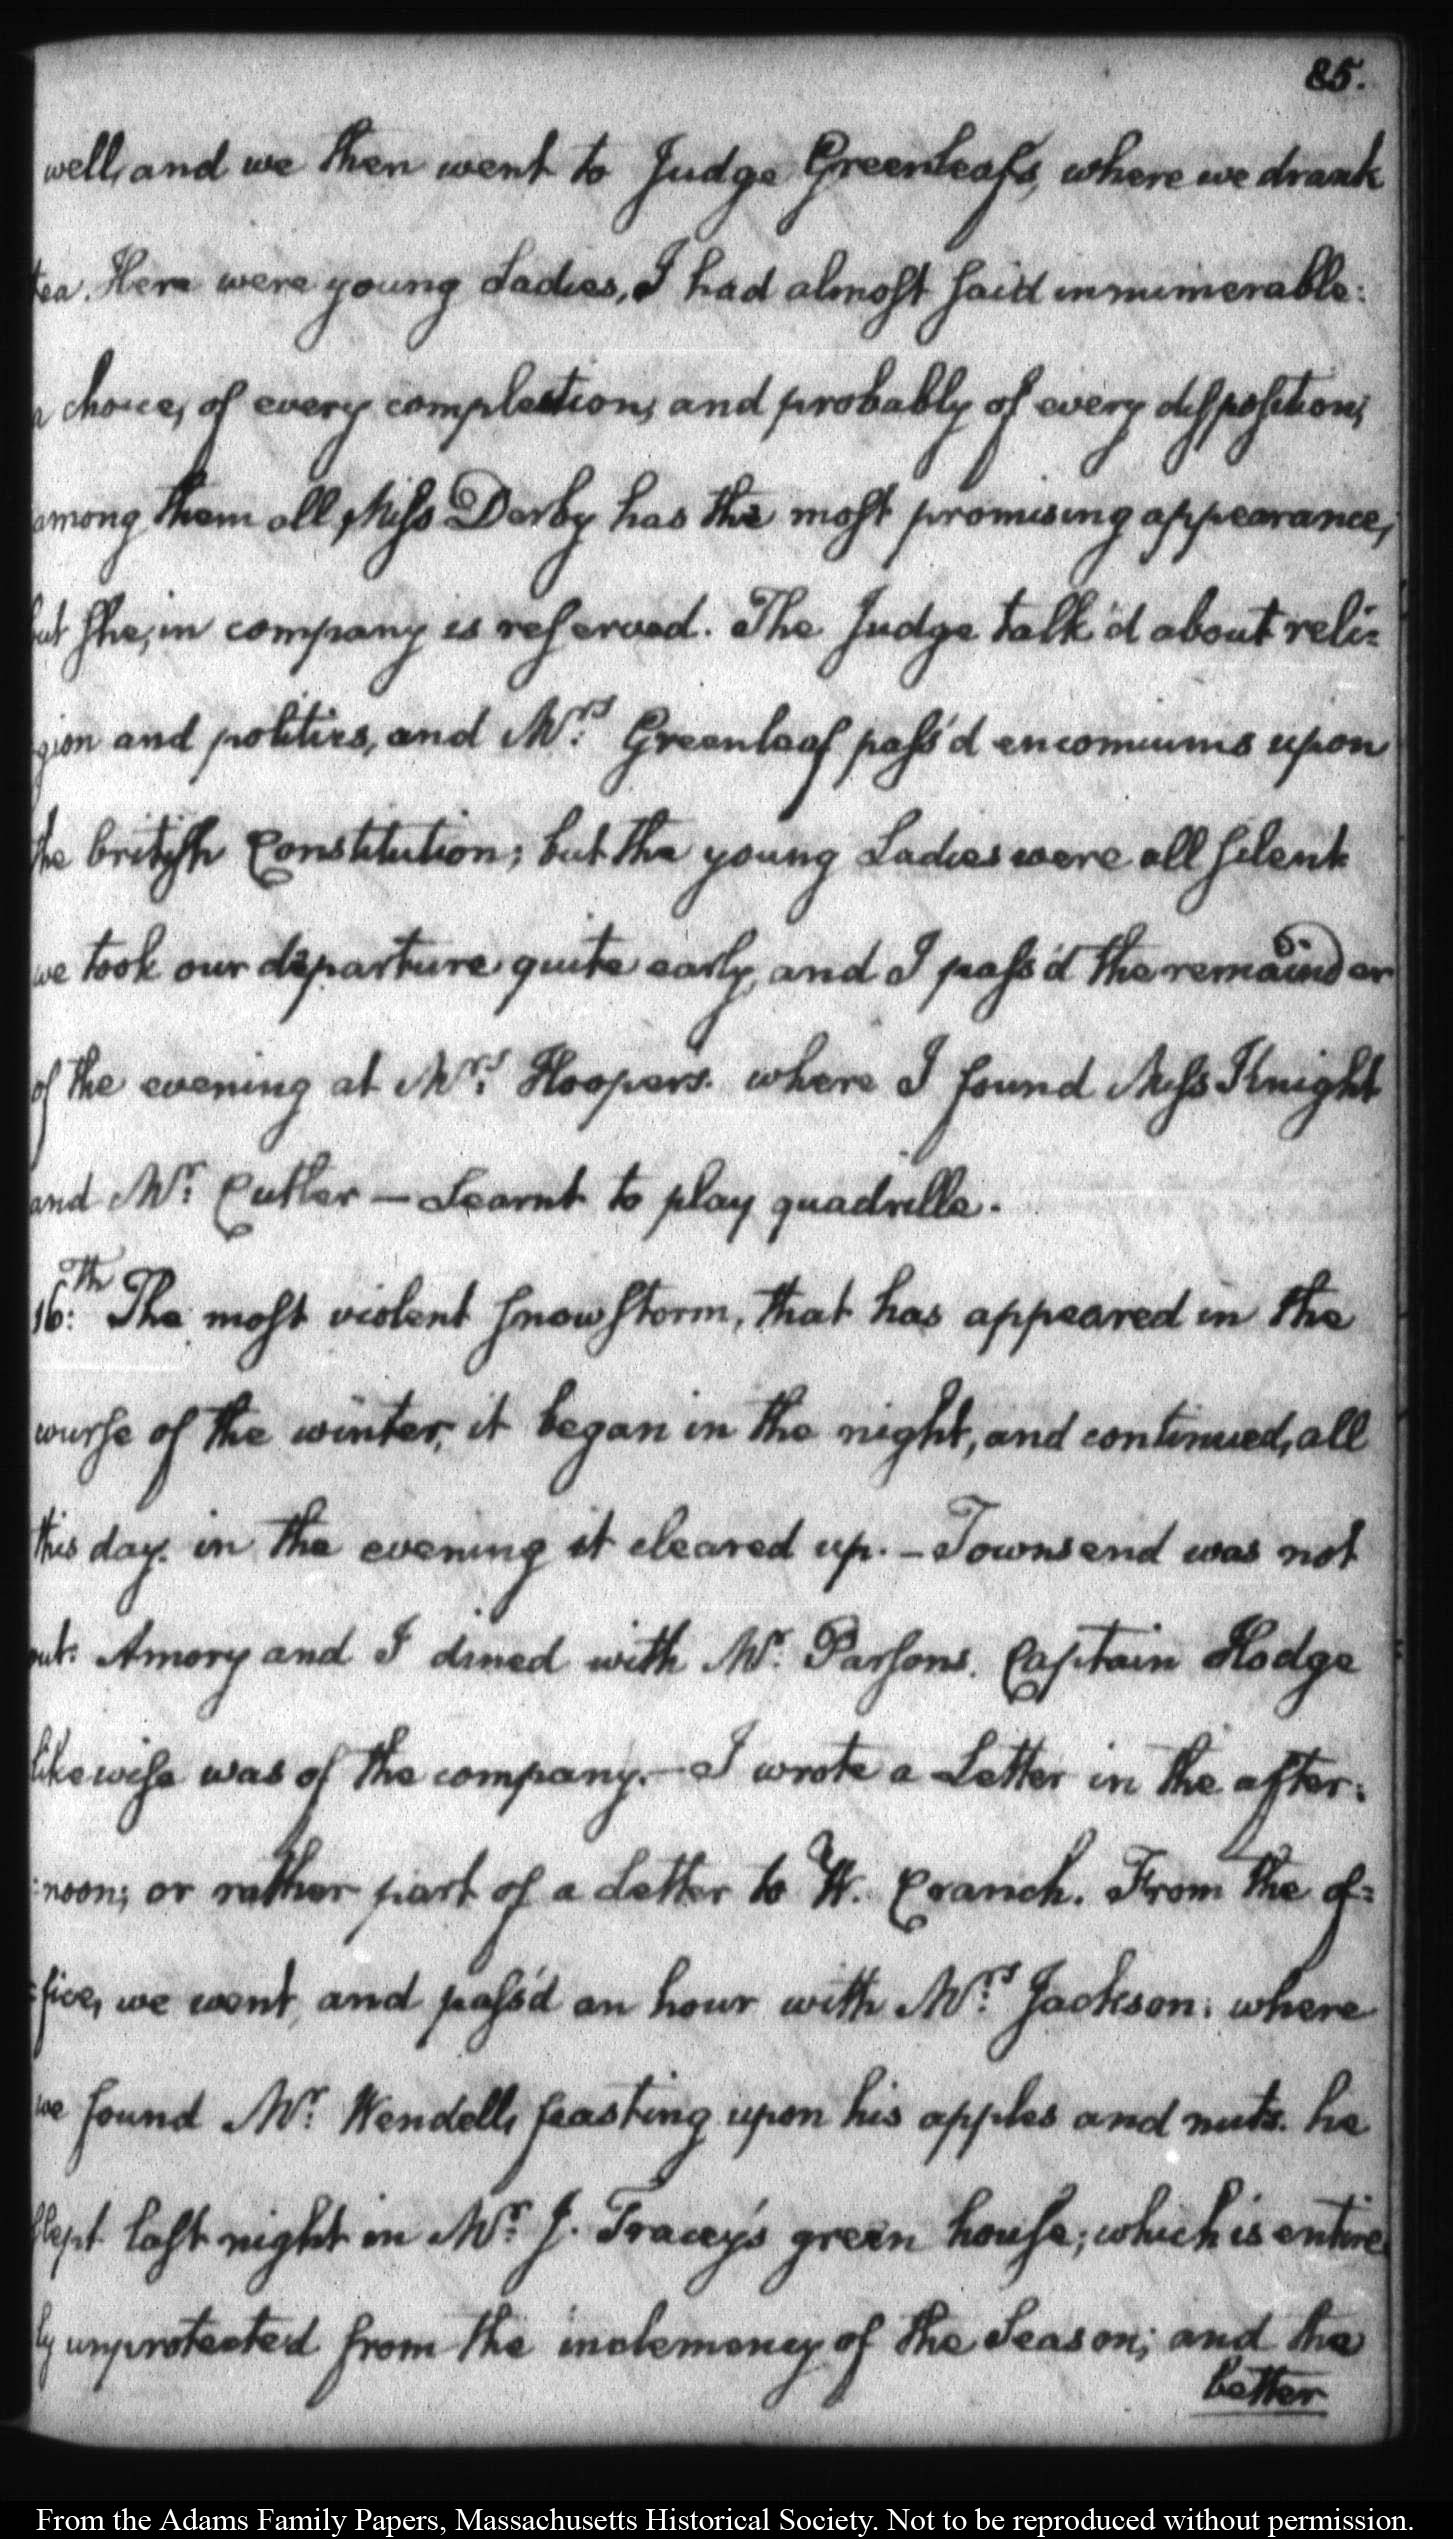 85.
well, and we then went to Judge Greenleafs, where we drank
tea. Here were young Ladies, I had almost said innumerable:
a choice, of every complection, and probably of every disposition;
among them all, Miss Derby has the most promising appearance,
but she, in company is reserved. The Judge talk'd about reli=
gion and politics, and Mrs. Greenleaf pass'd encomiums upon
the british Constitution; but the young Ladies were all silent
we took our departure quite early, and I pass'd the remainder
of the evening at Mrs. Hooper's. where I found Miss Knight
and Mr. Cutler — Learnt to play quadrille.
16th: The most violent snow storm, that has appeared in the
course of the winter, it began in the night, and continued, all
this day. in the evening it cleared up. — Townsend was not
out. Amory and I dined with Mr. Parsons. Captain Hodge
likewise was of the company. — I wrote a Letter in the after:
:noon; or rather part of a Letter to W. Cranch. From the of=
=fice, we went, and pass'd an hour with Mrs. Jackson: where
we found Mr. Wendell, feasting upon his apples and nuts. he
slept last night in Mr. J. Tracey's green house; which is entire
ly unprotected from the inclemency of the Season; and the
better
From the Adams Family Papers, Massachusetts Historical Society. Not to be reproduced without permission.